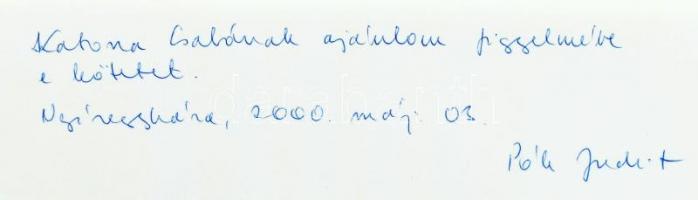 Katona Csabának ajánlom figyelmébe
e kötetet.
Nyíregyháza, 2000. máj. 03.
Pók Judit